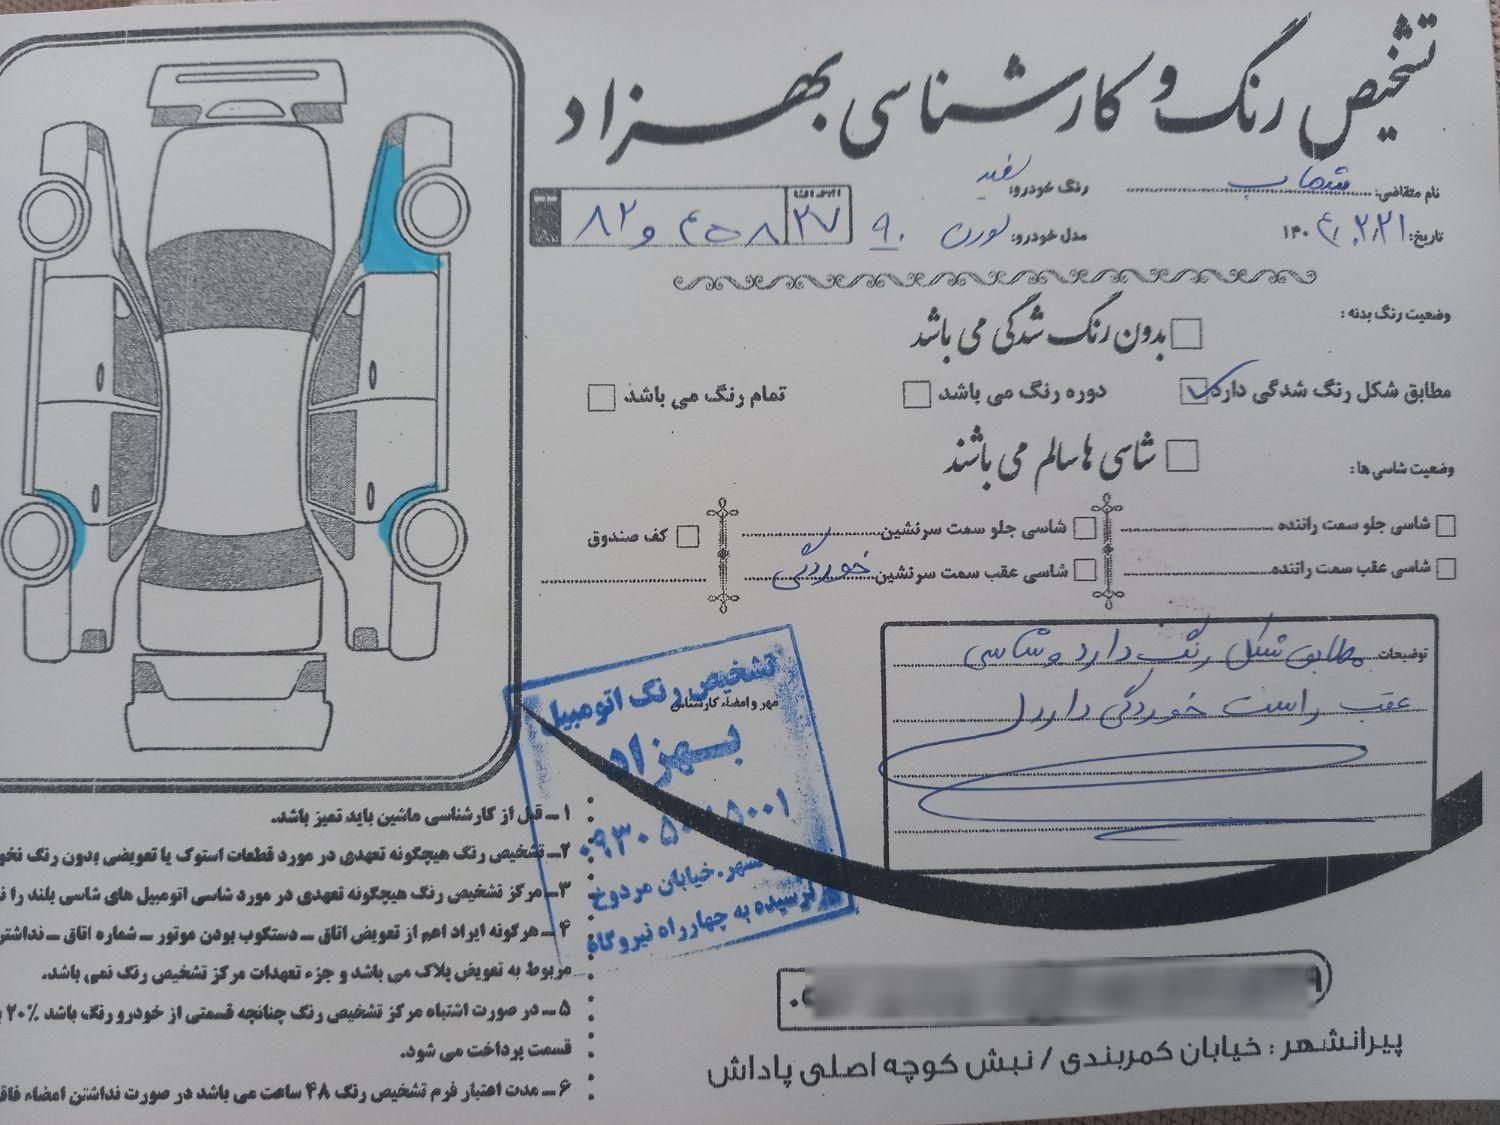 تشخیص رنگ و کارشناسی بهزاد
نام متقاضی: شهاب
رنگ خودرو: سفید
تاریخ: ۱۴۰۴/۲/۲۱
مدل خودرو: لورن ۹۰
۲۷
۸۲ و
وضعیت رنگ بدنه:
بدون رنگ شدگی می باشد
مطابق شکل رنگ شدگی دارد
دوره رنگ می باشد
تمام رنگ می باشد
وضعیت شاسی ها:
شاسی ها سالم می باشند
شاسی جلو سمت راننده
شاسی جلو سمت سرنشین
کف صندوق
شاسی عقب سمت راننده
شاسی عقب سمت سرنشین خوردگی
توضیحات مطابق شکل رنگ دارد و شاسی
عقب راست خوردگی دارد
مهر و امضاء کارشناس
تشخیص رنگ اتومبیل
بهزاد
خیابان مردوخ
نرسیده به چهارراه نیروگاه
۱ـ قبل از کارشناسی ماشین باید تمیز باشد.
۲ـ تشخیص رنگ هیچگونه تعهدی در مورد قطعات استوک یا تعویضی بدون رنگ
۳ـ مرکز تشخیص رنگ هیچگونه تعهدی در مورد شاسی اتومبیل های شاسی بلند را
۴ـ هرگونه ایراد اهم از تعویض اتاق ـ دستکوب بودن موتور ـ شماره اتاق ـ
مربوط به تعویض پلاک می باشد و جزء تعهدات مرکز تشخیص رنگ نمی باشد.
۵ـ در صورت اشتباه مرکز تشخیص رنگ چنانچه قسمتی از خودرو رنگ باشد ۲۰٪
قسمت پرداخت می شود.
۶ـ مدت اعتبار فرم تشخیص رنگ ۴۸ ساعت می باشد در صورت نداشتن امضاء
پیرانشهر: خیابان کمربندی / نبش کوچه اصلی پاداش